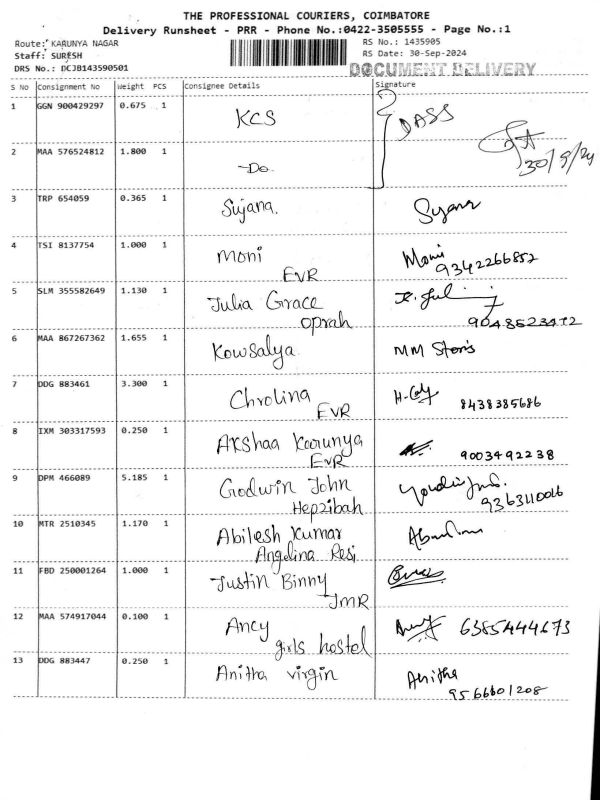 THE PROFESSIONAL COURIERS, COIMBATORE
Delivery Runsheet - PRR - Phone No.:0422-3505555 - Page No.:1
Route: KARUNYA NAGAR
RS No.: 1435905
Staff: SURESH
RS Date: 30-Sep-2024
DRS No.: DCJB143590501
DOCUMENT DELIVERY
S No Consignment No Weight PCS Consignee Details Signature
1 GGN 900429297 0.675 1 KCS DASS
30/9/24
2 MAA 576524812 1.800 1 -Do-
3 TRP 654059 0.365 1 Sujana. Sujana
4 TSI 8137754 1.000 1 Moni Moni
EVR 9342266852
5 SLM 355582649 1.130 1 Julia Grace
oprah
6 MAA 867267362 1.655 1 Kowsalya MM Stores
7 DDG 883461 3.300 1 Chrolina
EVR 8438385686
8 IXM 303317593 0.250 1 Akshaa Karunya
EVR 9003492238
9 DPM 466089 5.185 1 Godwin John
Hepzibah 9363110016
10 MTR 2510345 1.170 1 Abilesh Kumar
Angelina Resi
11 FBD 250001264 1.000 1 Justin Binny
JMR
12 MAA 574917044 0.100 1 Ancy 6385444673
girls hostel
13 DDG 883447 0.250 1 Anitha virgin Anitha
9566601208